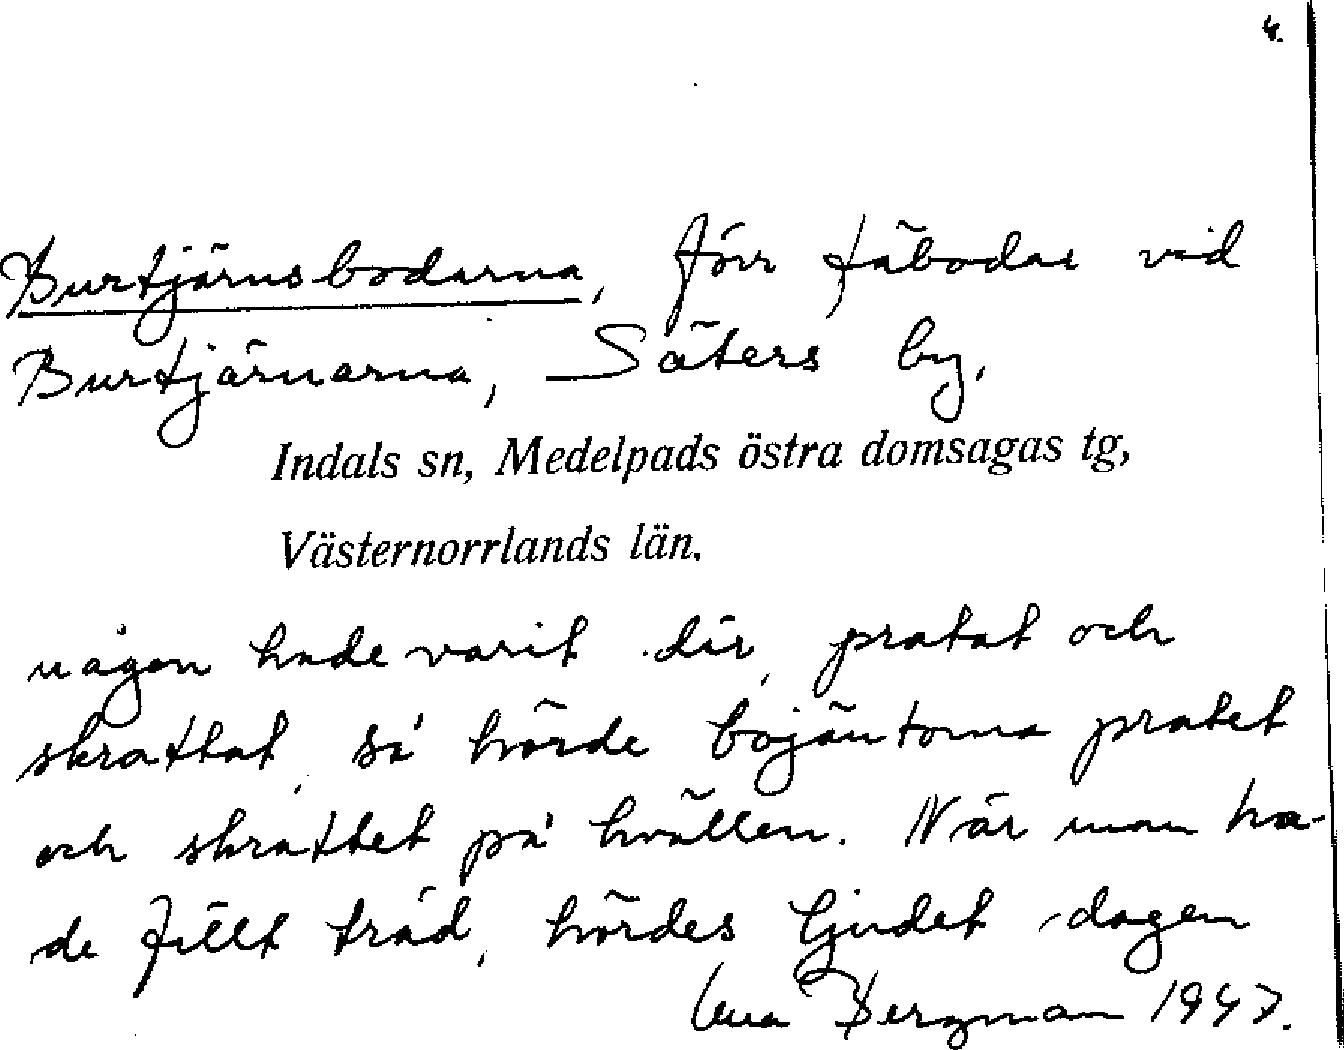 4.
Burtjärnsbodarna, förr fäbodar vid
Burtjärnarna, Säters by,
Indals sn, Medelpads östra domsagas tg,
Västernorrlands län.
någon hade varit där, pratat och
skrattat, så hörde bojäntorna pratet
och skrattet på kvällen. När man ha-
de fällt träd, hördes ljudet dagen
Bergman 1947.